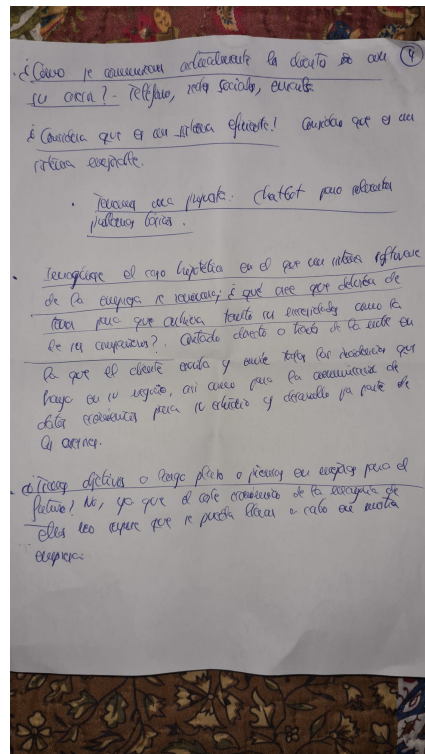 ¿Cómo se comunican actualmente la con 4
su ? - Teléfono, redes sociales,
¿Considera que es un sistema eficiente? Considero que es un
sistema mejorable.
Tenemos una propuesta. Chatbot para
problemas básicos.
Imagínese el caso hipotético en el que un sistema software
de la empresa se ; ¿qué cree que debería de
tener para que tanto sus necesidades como la
de sus compañeros? Contacto directo a través de la en
la que el cliente y envíe todas las que
haya en su negocio, así como para la comunicación de
datos económicos para su estudio y desarrollo parte de
la
¿Tienen objetivos a largo plazo o piensan en mejoras para el
futuro? No, ya que el coste económico de la de
ellas no que se pueda llevar a cabo en nuestra
empresa.